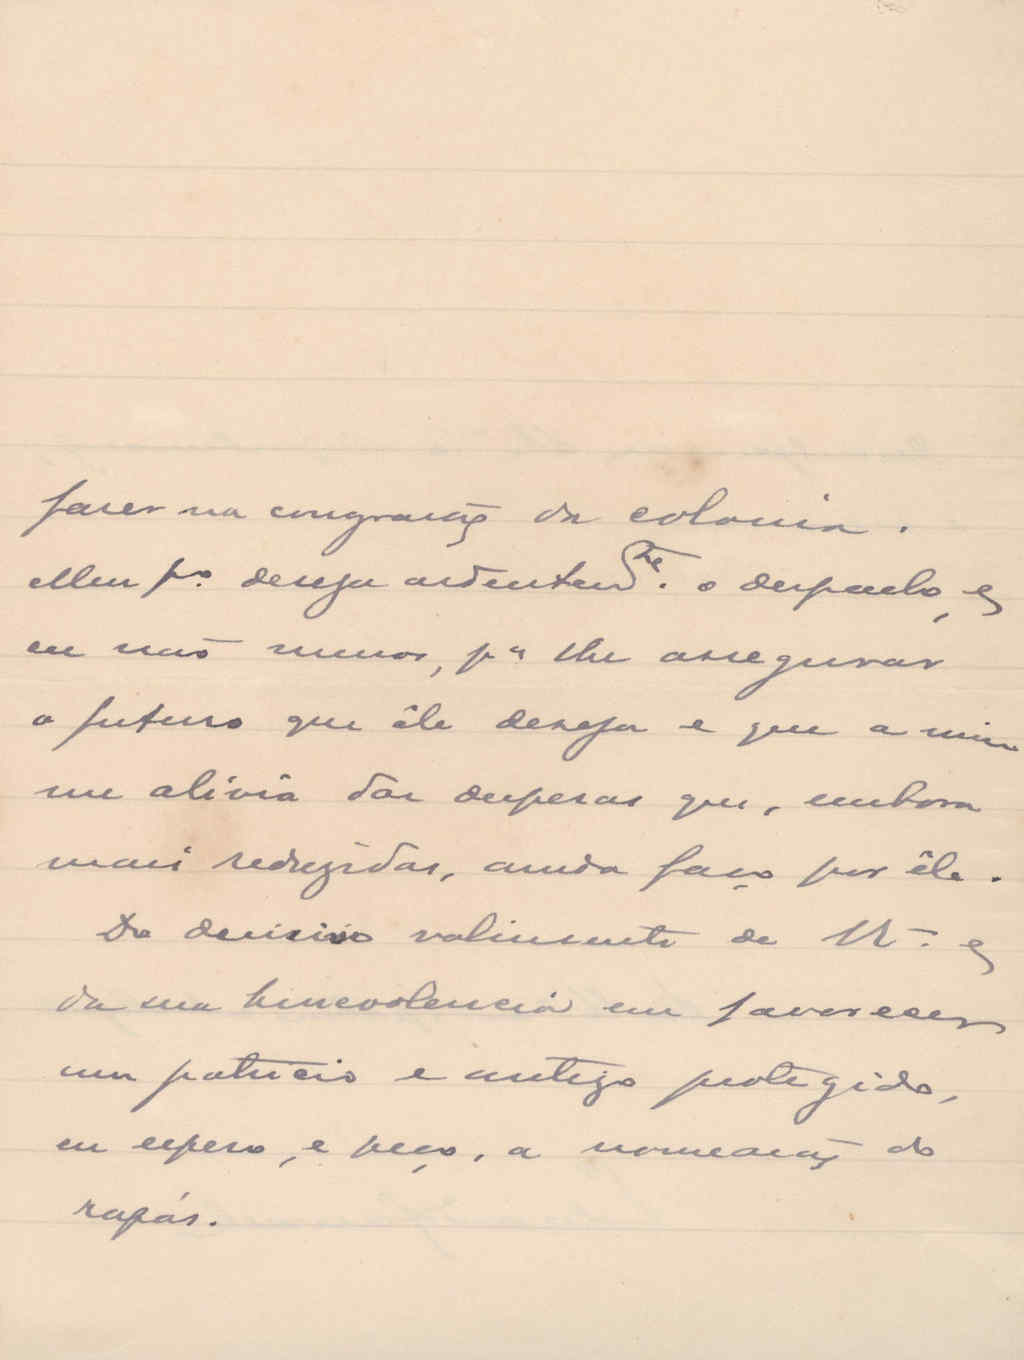 fazer na congração da colonia.
Meu fº. deseja ardentemte. o despacho, e
eu não menos, pª lhe assegurar
o futuro que êle deseja e que a mim
me alivia das despesas que, embora
mais reduzidas, ainda faço por êle.
Do decisivo valimento de V. e
da sua benevolencia em favorecer
um patricio e antigo protegido,
eu espero, e peço, a nomeação do
rapás.